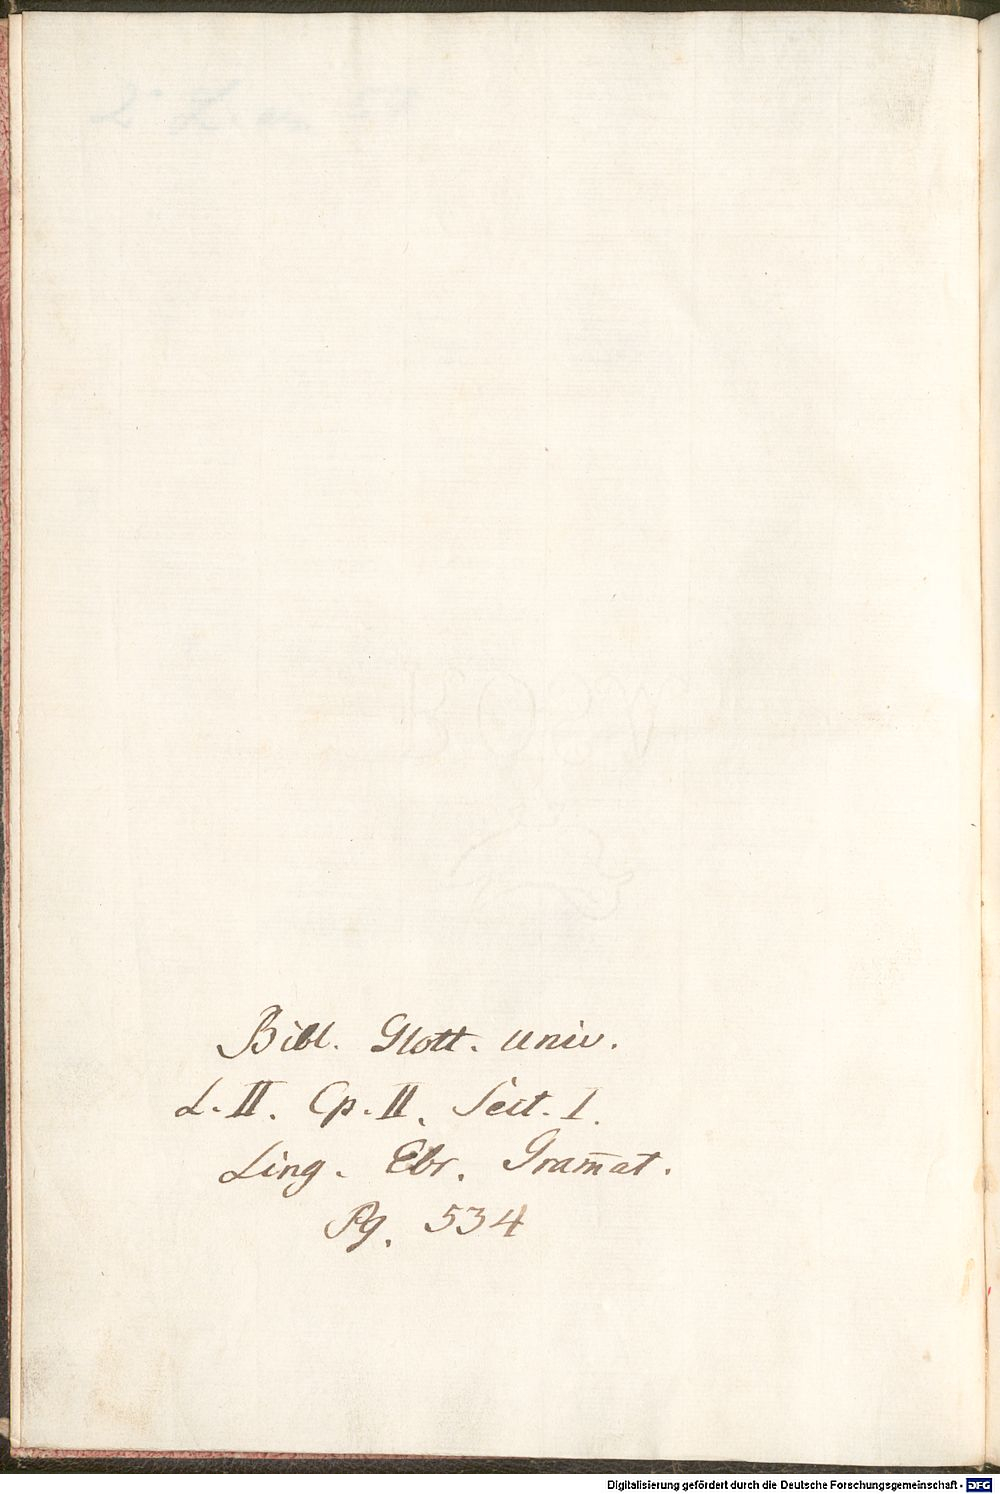 Bibl. Glott. univ.
L. II. Cp. II. Sect. I.
Ling. Ebr. Gram̄at.
Pg. 534
Digitalisierung gefördert durch die Deutsche Forschungsgemeinschaft - DFG